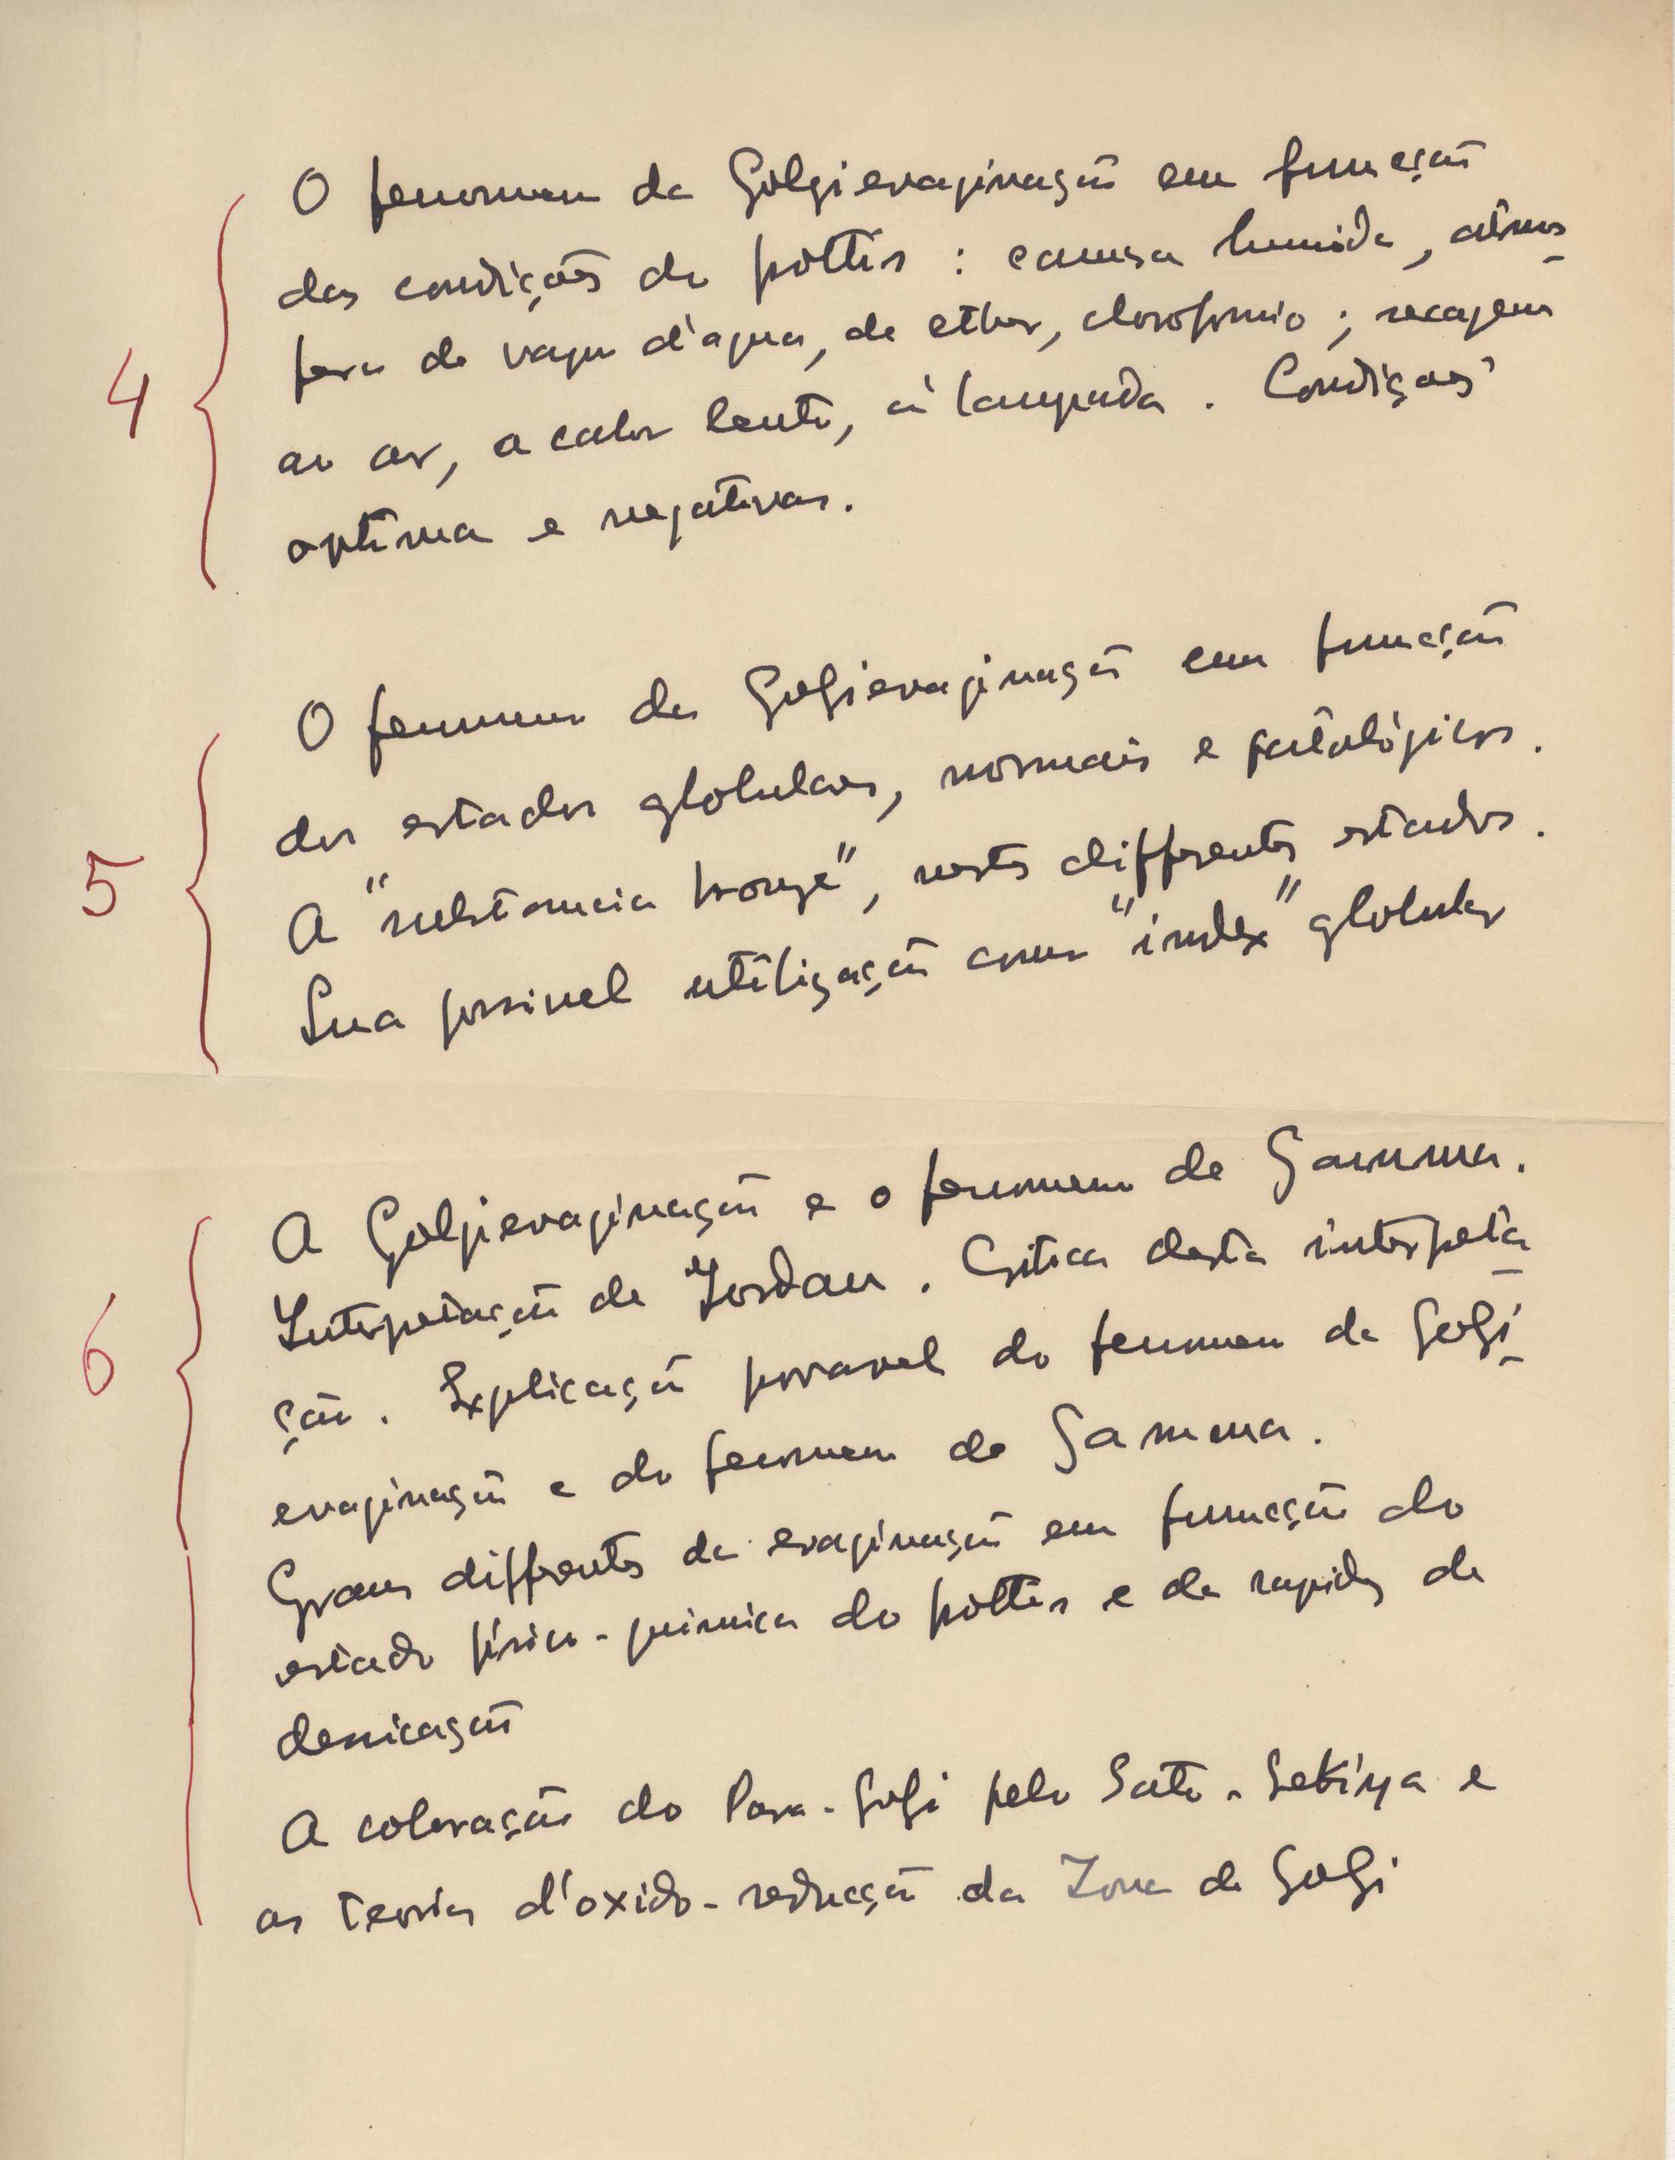 4
O fenomeno da Golgievaginação em funcção
das condições do frottis : camera humida, atmos-
fera de vapor d'agua, de ether, cloroformio ; secagem
ao ar, a calor lento, á lampada . Condições
optima e negativas.
5
O fenomeno da Golgievaginação em funcção
dos estados globulares, normais e patológicos.
A "substancia bronze", nestes differentes estados.
Sua possivel utilização como "index" globular
6
A Golgievaginação e o fenomeno de Gamma.
Interpetação de Jordan . Critica desta interpeta-
ção . Explicação provavel do fenomeno da Golgi-
evaginação e do fenomeno de Gamma.
Graus differentes da evaginação em funcção do
estado físico-quimico do frottis e da rapidez de
dessicação
A coloração do Para-Golgi pelo Sato-Sekiya e
as teorias d'oxido-reducção da Zona de Golgi